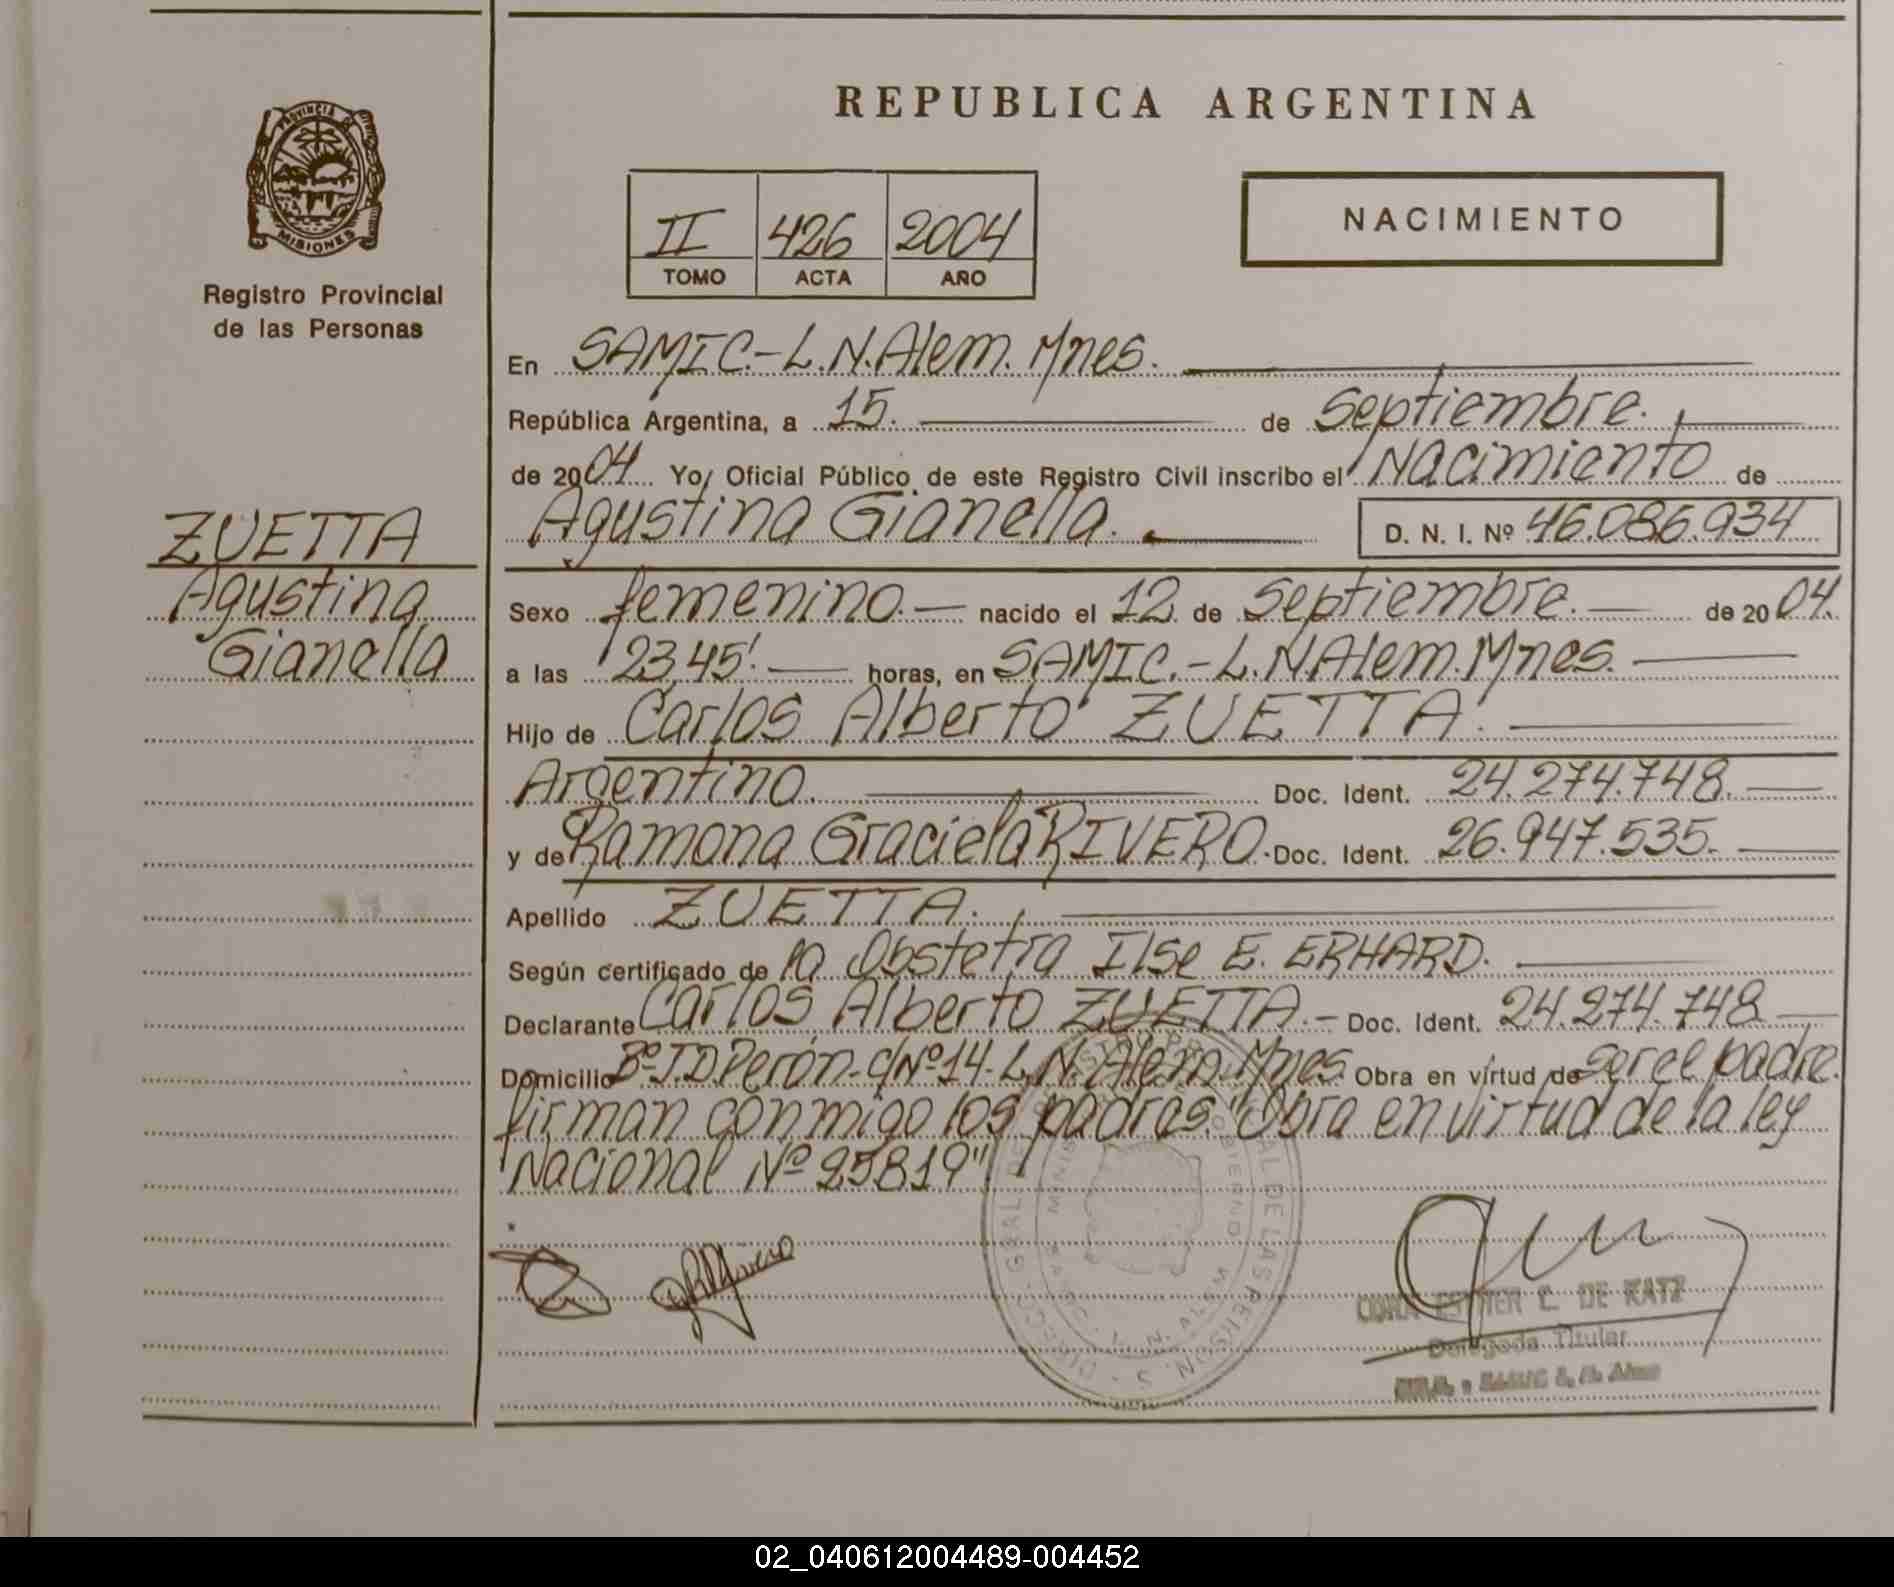 REPUBLICA ARGENTINA
PROVINCIA DE MISIONES
Registro Provincial
de las Personas
II 426 2004
TOMO ACTA AÑO
NACIMIENTO
ZUETTA
Agustina
Gianella
En SAMIC.-L.N.Alem. Mnes.
República Argentina, a 15. de Septiembre.
de 2004 Yo, Oficial Público de este Registro Civil inscribo el Nacimiento de
Agustina Gianella. D. N. I. Nº 46.086.934
Sexo femenino. nacido el 12 de Septiembre. de 2004.
a las 23,45'. horas, en SAMIC.-L.N.Alem.Mnes.
Hijo de Carlos Alberto ZUETTA.
Argentino. Doc. Ident. 24.274.748.
y de Ramona Graciela RIVERO. Doc. Ident. 26.947.535.
Apellido ZUETTA.
Según certificado de la Obstetra Ilse E. ERHARD.
Declarante Carlos Alberto ZUETTA.- Doc. Ident. 24.274.748
Domicilio Bº.J.D.Perón.c/Nº14-L.N.Alem.Mnes Obra en virtud de ser el padre.
firman conmigo los padres. "Obra en virtud de la ley
Nacional Nº 25819".
ESTHER C. DE KATZ
Delegada Titular
02_040612004489-004452